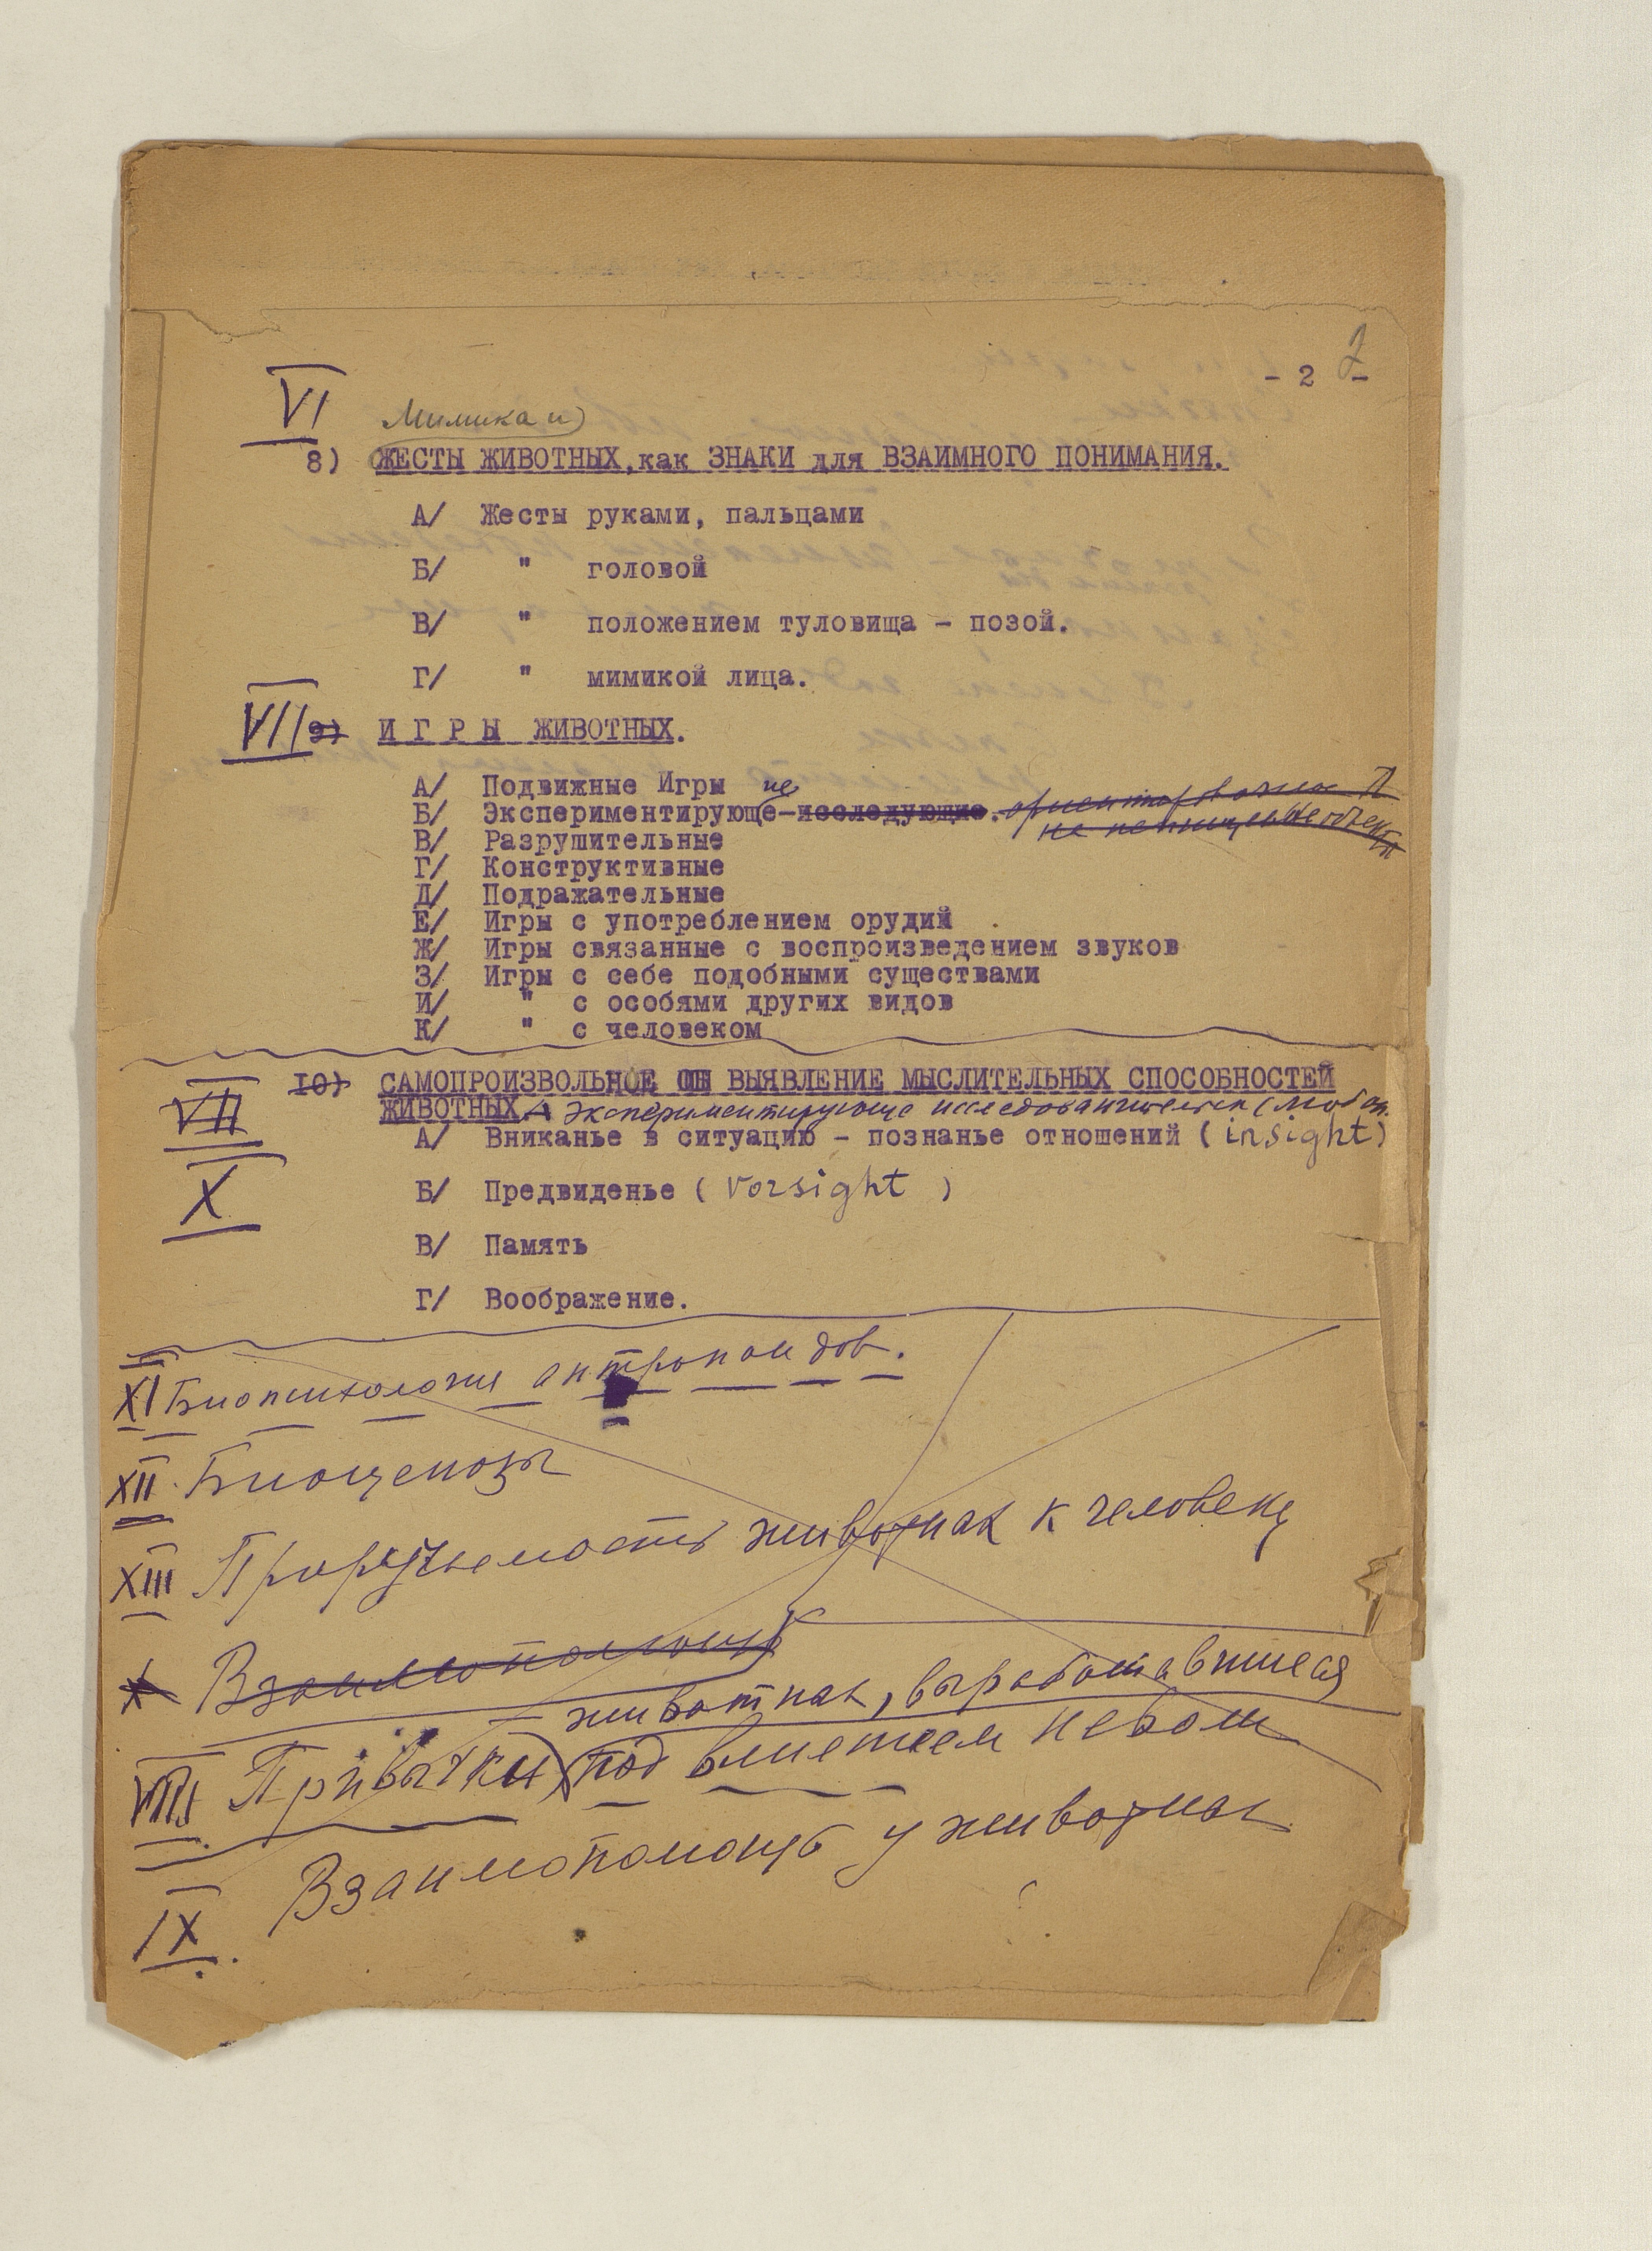 - 2 -
2
VI
Мимика и
8) ЖЕСТЫ ЖИВОТНЫХ, как ЗНАКИ для ВЗАИМНОГО ПОНИМАНИЯ.
А/ Жесты руками, пальцами
Б/ " головой
В/ " положением туловища - позой.
Г/ " мимикой лица.
VII 9) И Г Р Ы ЖИВОТНЫХ.
А/ Подвижные Игры
Б/ Экспериментирующе-исследующие.
не пепищевые объекты
В/ Разрушительные
Г/ Конструктивные
Д/ Подражательные
Е/ Игры с употреблением орудий
Ж/ Игры связанные с воспроизведением звуков
З/ Игры с себе подобными существами
И/ " с особями других видов
К/ " с человеком
VII 10) САМОПРОИЗВОЛЬНОЕ ВЫЯВЛЕНИЕ МЫСЛИТЕЛЬНЫХ СПОСОБНОСТЕЙ
ЖИВОТНЫХ. А Экспериментирующе исследовательск (любоп.
А/ Вниканье в ситуацию - познанье отношений (insight)
X
Б/ Предвиденье (Vorsight)
В/ Память
Г/ Воображение.
XI Биопсихология антропоидов.
XII Биоценозы
XIII Приручаемость животных к человеку
X Взаимопомощь
животных, выработавшиеся
VIII Привычки под влиянием неволи
Взаимопомощь у животных
IX.